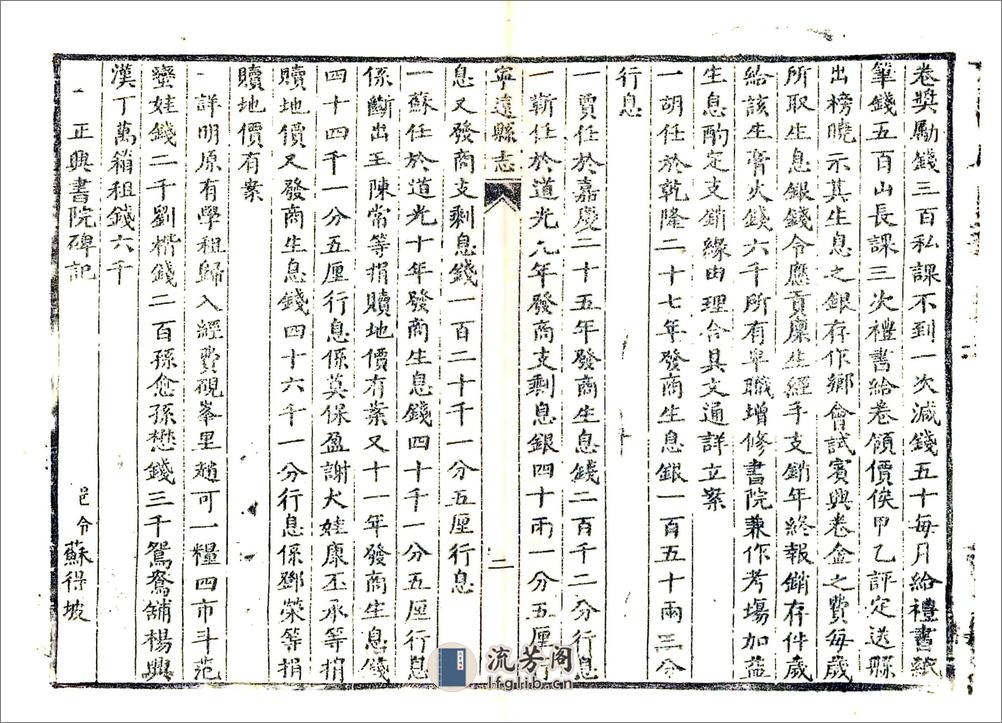 卷奬勵錢三百私課不到一次減錢五十每月給禮書紙
筆錢五百山長課三次禮書給卷領價俟甲乙評定送縣
出榜曉示其生息之銀存作鄉會試賓興卷金之費每歲
所取生息銀錢令應貢廩生經手支銷年終報銷存件歲
給該生膏火錢六千所有卑職增修書院兼作考塲加益
生息酌定支銷緣由理合具文通詳立案
一胡任於乾隆二十七年發商生息銀一百五十兩三分
行息
一賈任於嘉慶二十五年發商生息錢二百千二分行息
一靳任於道光九年發商支剩息銀四十兩一分五厘行
寧遠縣志
二
息又發商支剩息錢一百二十千一分五厘行息
一蘇任於道光十年發商生息錢四十千一分五厘行息
係斷出王陳常等捐贖地價有案又十一年發商生息錢
四十四千一分五厘行息係莫保盈謝犬娃康丕承等捐
贖地價又發商生息錢四十六千一分行息係鄧榮等捐
贖地價有案
一詳明原有學租歸入經費硯峯里趙可一糧四市斗范
蠻娃錢二千劉楷錢二百孫愈孫懋錢三千鴛鴦舖楊興
漢丁萬箱租錢六千
一正興書院碑記
邑令蘇得坡
流芳阁
lfglib.cn